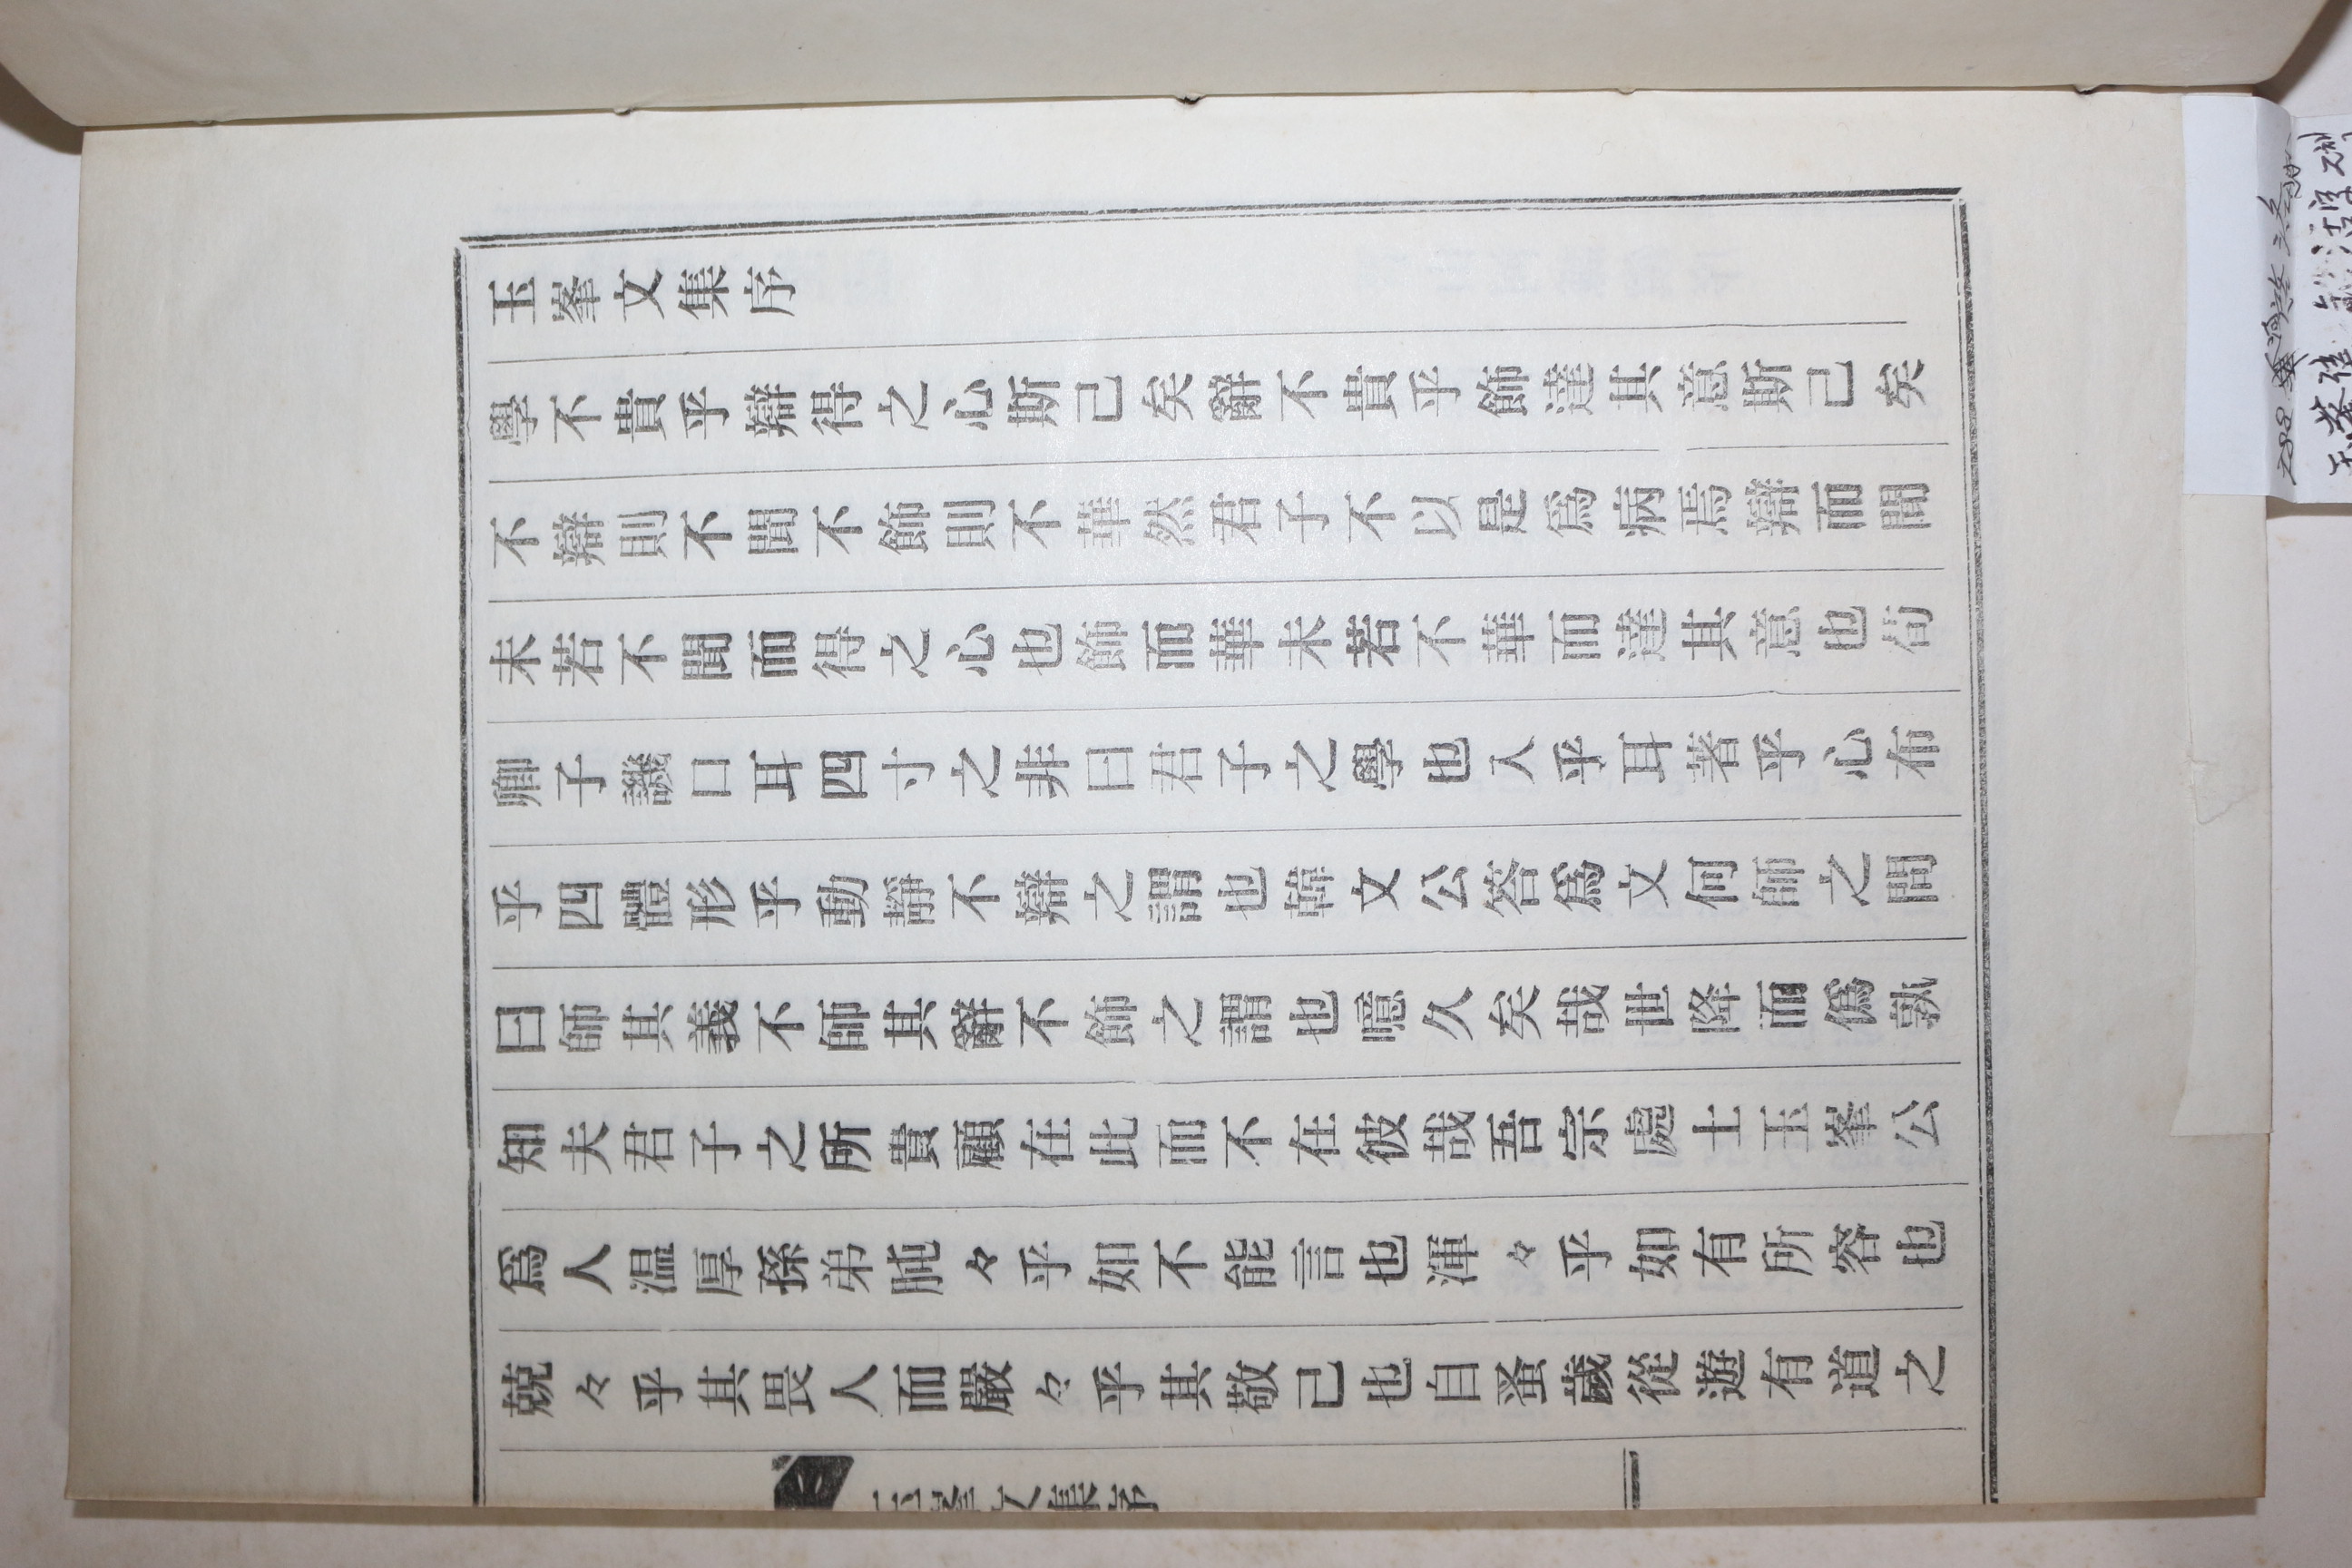 玉峯文集序
學不貴乎辯得之心斯己矣辭不貴乎飾達其意斯己矣
不辯則不聞不飾則不華然君子不以是爲病焉辯而聞
未若不聞而得之心也飾而華未若不華而達其意也荀
卿子譏口耳四寸之非曰君子之學也入乎耳著乎心布
乎四體形乎動靜不辯之謂也韓文公答爲文何師之問
曰師其義不師其辭不飾之謂也噫久矣哉世降而僞孰
知夫君子之所貴顧在此而不在彼哉吾宗處士玉峯公
爲人温厚孫弟肫々乎如不能言也渾々乎如有所容也
兢々乎其畏人而嚴々乎其敬己也自蚤歲從遊有道之
玉峯文集序